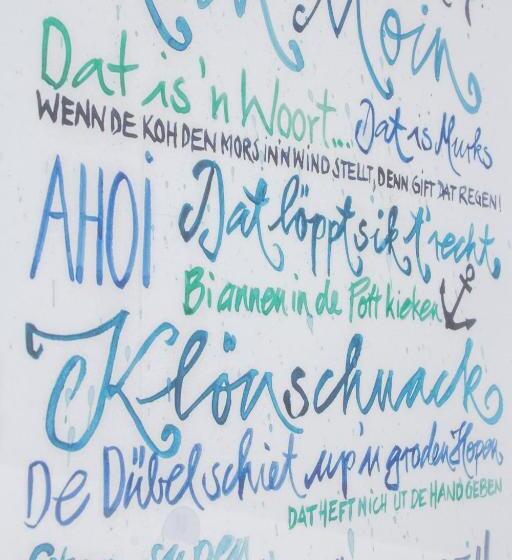 Klön Moin
Dat is 'n Woort...
Dat is Murks
WENN DE KOH DEN MORS IN'N WIND STELLT, DENN GIFT DAT REGEN!
AHOI
Dat löppt sik t'recht
Bi annen in de Pott kieken
Klönschnack
De Dübel schiet up'n groden Hopen
DAT HEFT MICH UT DE HAND GEBEN